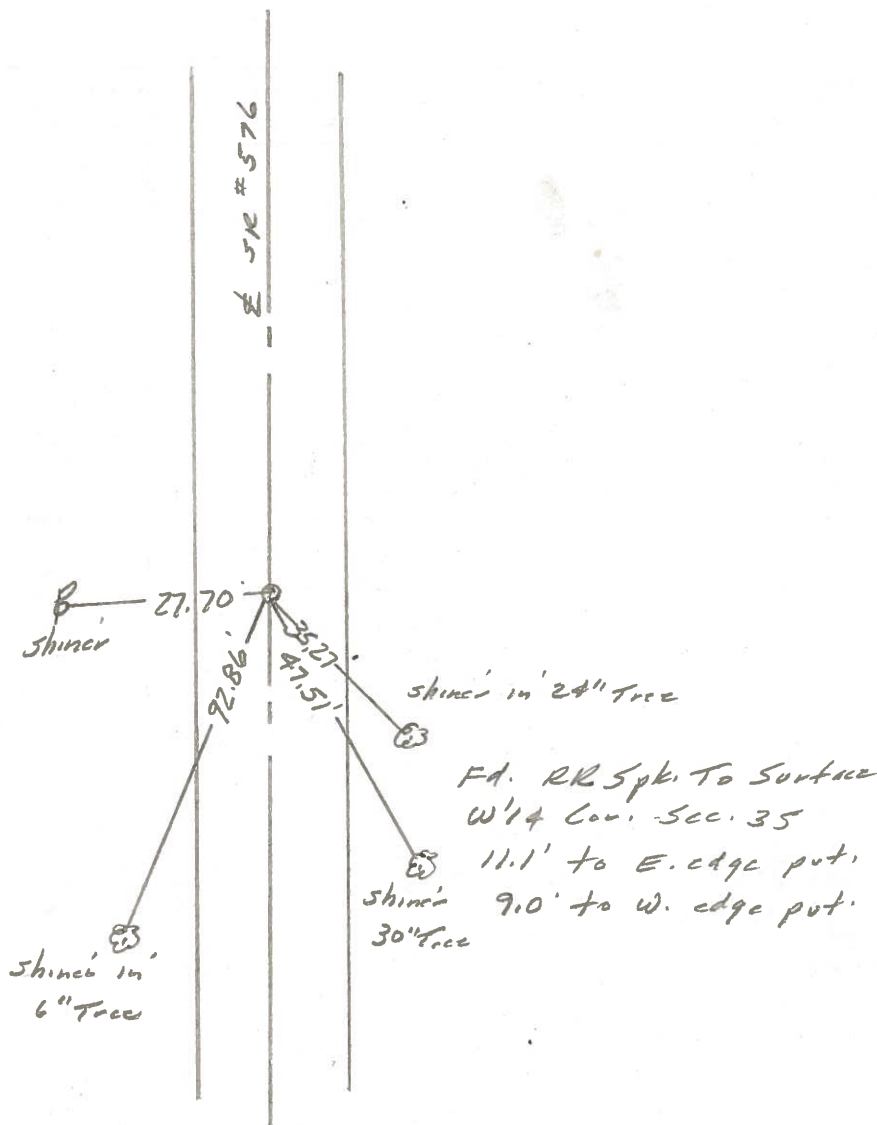 ℄ SR #576
27.70'
shiner
92.86'
35.27'
47.51'
shiner in 24" Tree
Fd. RR Spk. To Surface
W 1/4 Cor. Sec. 35
11.1' to E. edge pvt.
9.0' to W. edge pvt.
shiner
30" Tree
shiner in
6" Tree